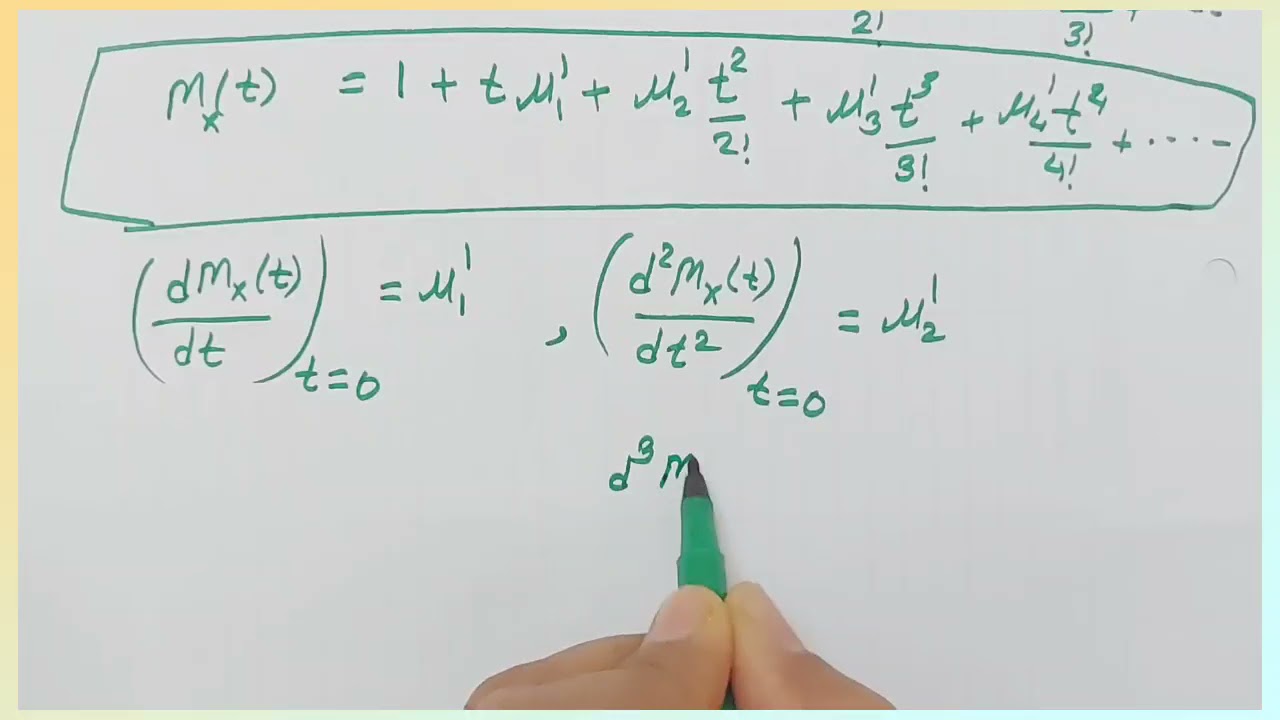 2! 3! + ..
M_x(t) = 1 + t μ₁' + μ₂' t²/2! + μ₃' t³/3! + μ₄' t⁴/4! + ....-
(dM_x(t)/dt)_t=0 = μ₁' , (d²M_x(t)/dt²)_t=0 = μ₂'
d³ M